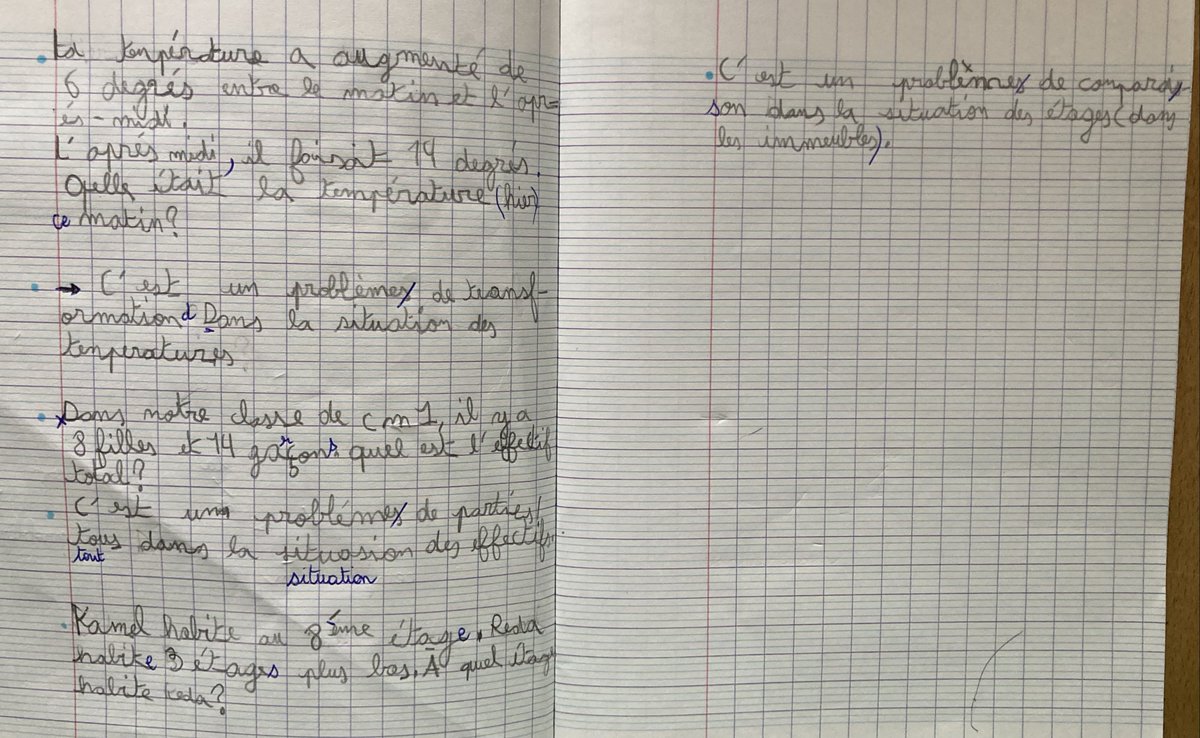 La température a augmenté de
6 degrés entre le matin et l'apr=
és-midi.
L'aprés midi, il faisait 14 degrés.
Quelle était la température (hier)
ce matin?
→ C'est un problèmes de transf-
ormation d Dans la situation des
temperatures
Dans notre classe de cm1, il y a
8 filles et 14 garçons quel est l'effectif
total?
C'est un problémes de parties/
tous dans la situasion des effectifs.
tout
situation
Kamel habite au 8éme étage. Reda
habite 3 étages plus bas. À quel étage
habite reda?
C'est un problèmes de comparai-
son dans la situation des étages (dans
les immeubles).